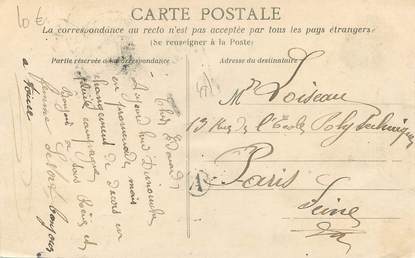 10 €
CARTE POSTALE
La correspondance au recto n'est pas acceptée par tous les pays étrangers
(Se renseigner à la Poste)
Partie réservée à la correspondance
Adresse du destinataire
Cher Edouard
Aujourd'hui Dimanche
en promenade mais
changement de décors en
pleine campagne
Bonjour à
femme
bonjour
a tous
Mr Loiseau
13 Rue de l'École Polytechnique
Paris
Seine
A